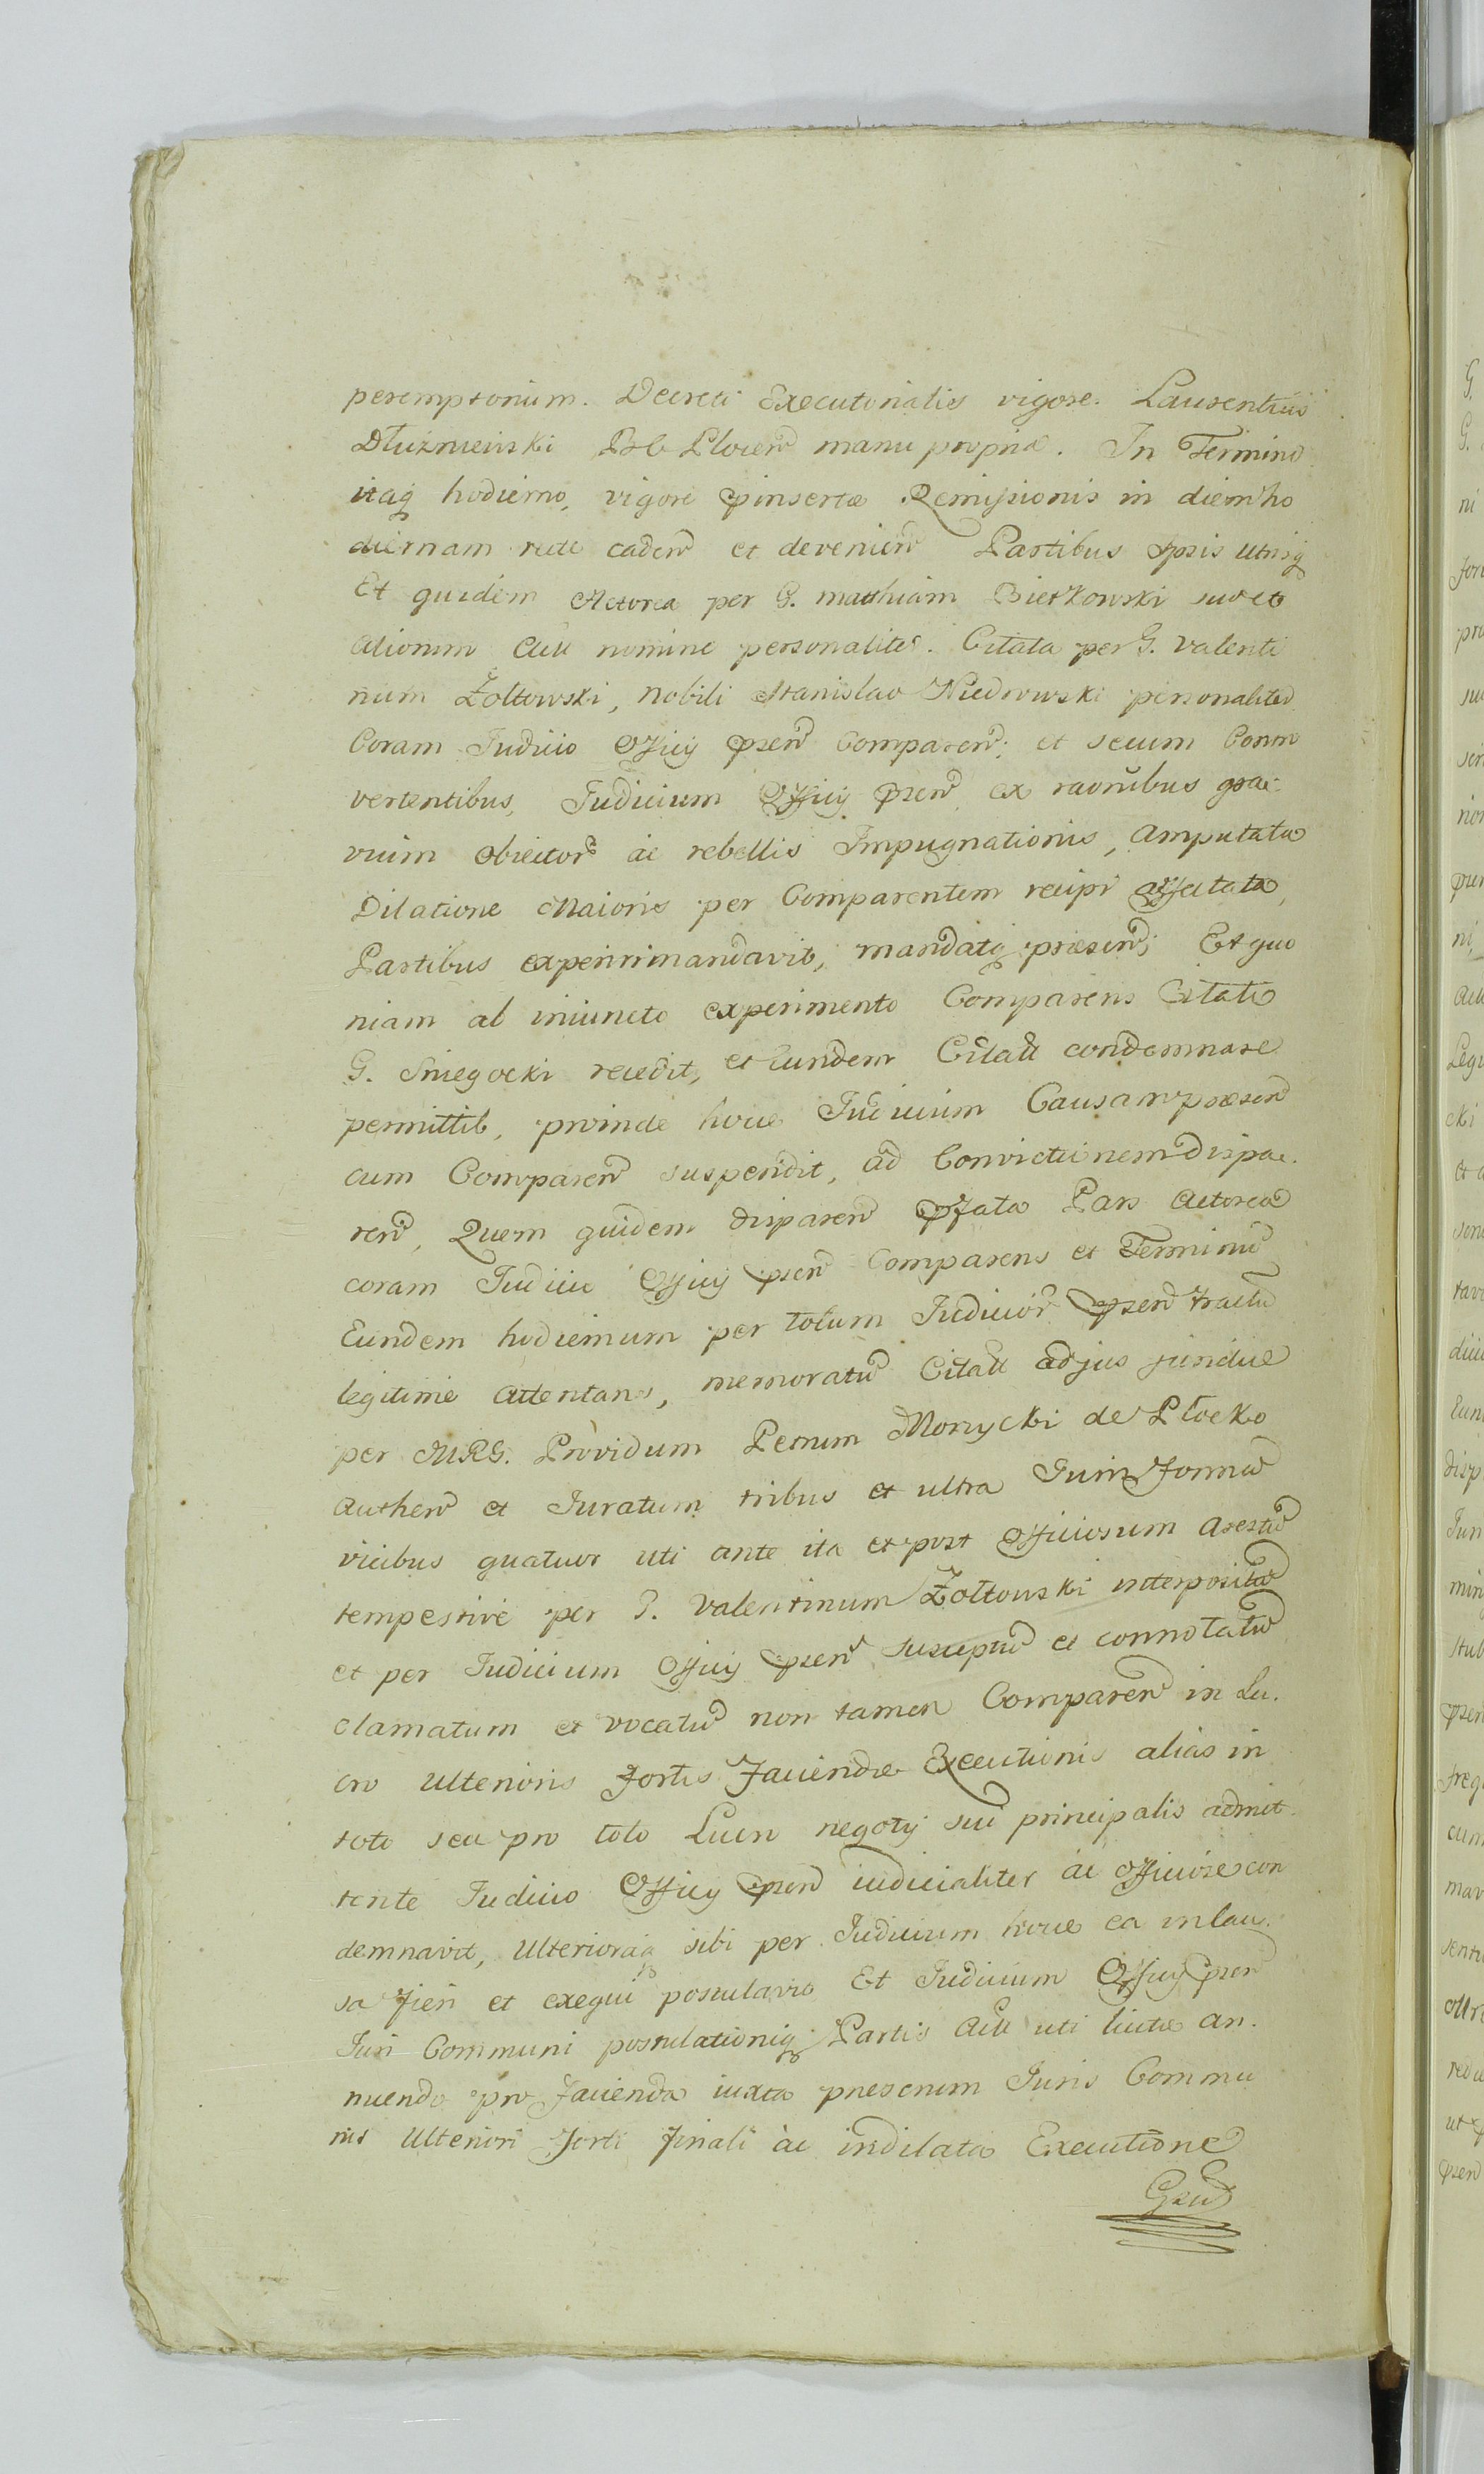 peremptorium. Decreti Executorialis vigore. Laurentius
Dłużniewski manu propria. In Termino
itaq hodierno, vigore pinsertæ Remissionis in diem ho
diernam rite caden et devenien Partibus Ipsis utrisq
Et quidem Actorea per G. Mathiam Bietkowski suo et
aliorum nomine personaliter. Citata per G. Valenti
num Żołtowski, Nobili Stanislao personaliter
Coram Judicio Officij pren Comparen; et secum Contro
vertentibus, Judicium Officij pren ex raonibus gra-
vium obiector ac rebellis Impugnationis, amputata
Dilatione Maioris per Comparentem recipi affectata,
Partibus experiri mandavit, mandatq præsen; Et quo
niam ab iniuncto experimento Comparens Citati
G. Sniegocki recedit, et Eundem Citatt condemnare
permittit, proinde hocce Judicium Causam præsen
cum Comparen suspendit, ad Convictionem dispa-
ren, Quem quidem disparen pfata Pars Actorea
coram Judicio Officij pren Comparens et Terminu
Eundem hodiernum per totum Judicior pren tractu
legitime attentans, memoratu Citatt ad jus juridice
per MRG. Providum Petrum Morzycki de Płocko
Authen et Juratum tribus et ultra Juris forma
vicibus quatuor uti ante ita et post officiosum arestu
tempestive per G. Valentinum Żołtowski interpositu
et per Judicium Officij pren susceptu et connotatu
clamatum et vocatu non tamen Comparen in Lu-
cro ulterioris fortis faciendæ Executionis alias in
toto seu pro toto Lucro negotij sui principalis admit-
tente Judicio Officij pren iudicialiter ac officiose con
demnavit, Ulterioraq sibi per Judicium hocce ea in cau-
sa fieri et exequi postulavit Et Judicium Officij pren
Juri Communi postulationiq Partis uti licitæ an-
nuendo pro facienda iuxta præscrium Juris Commu
nis Ulteriori forti finali ac indilata Executione